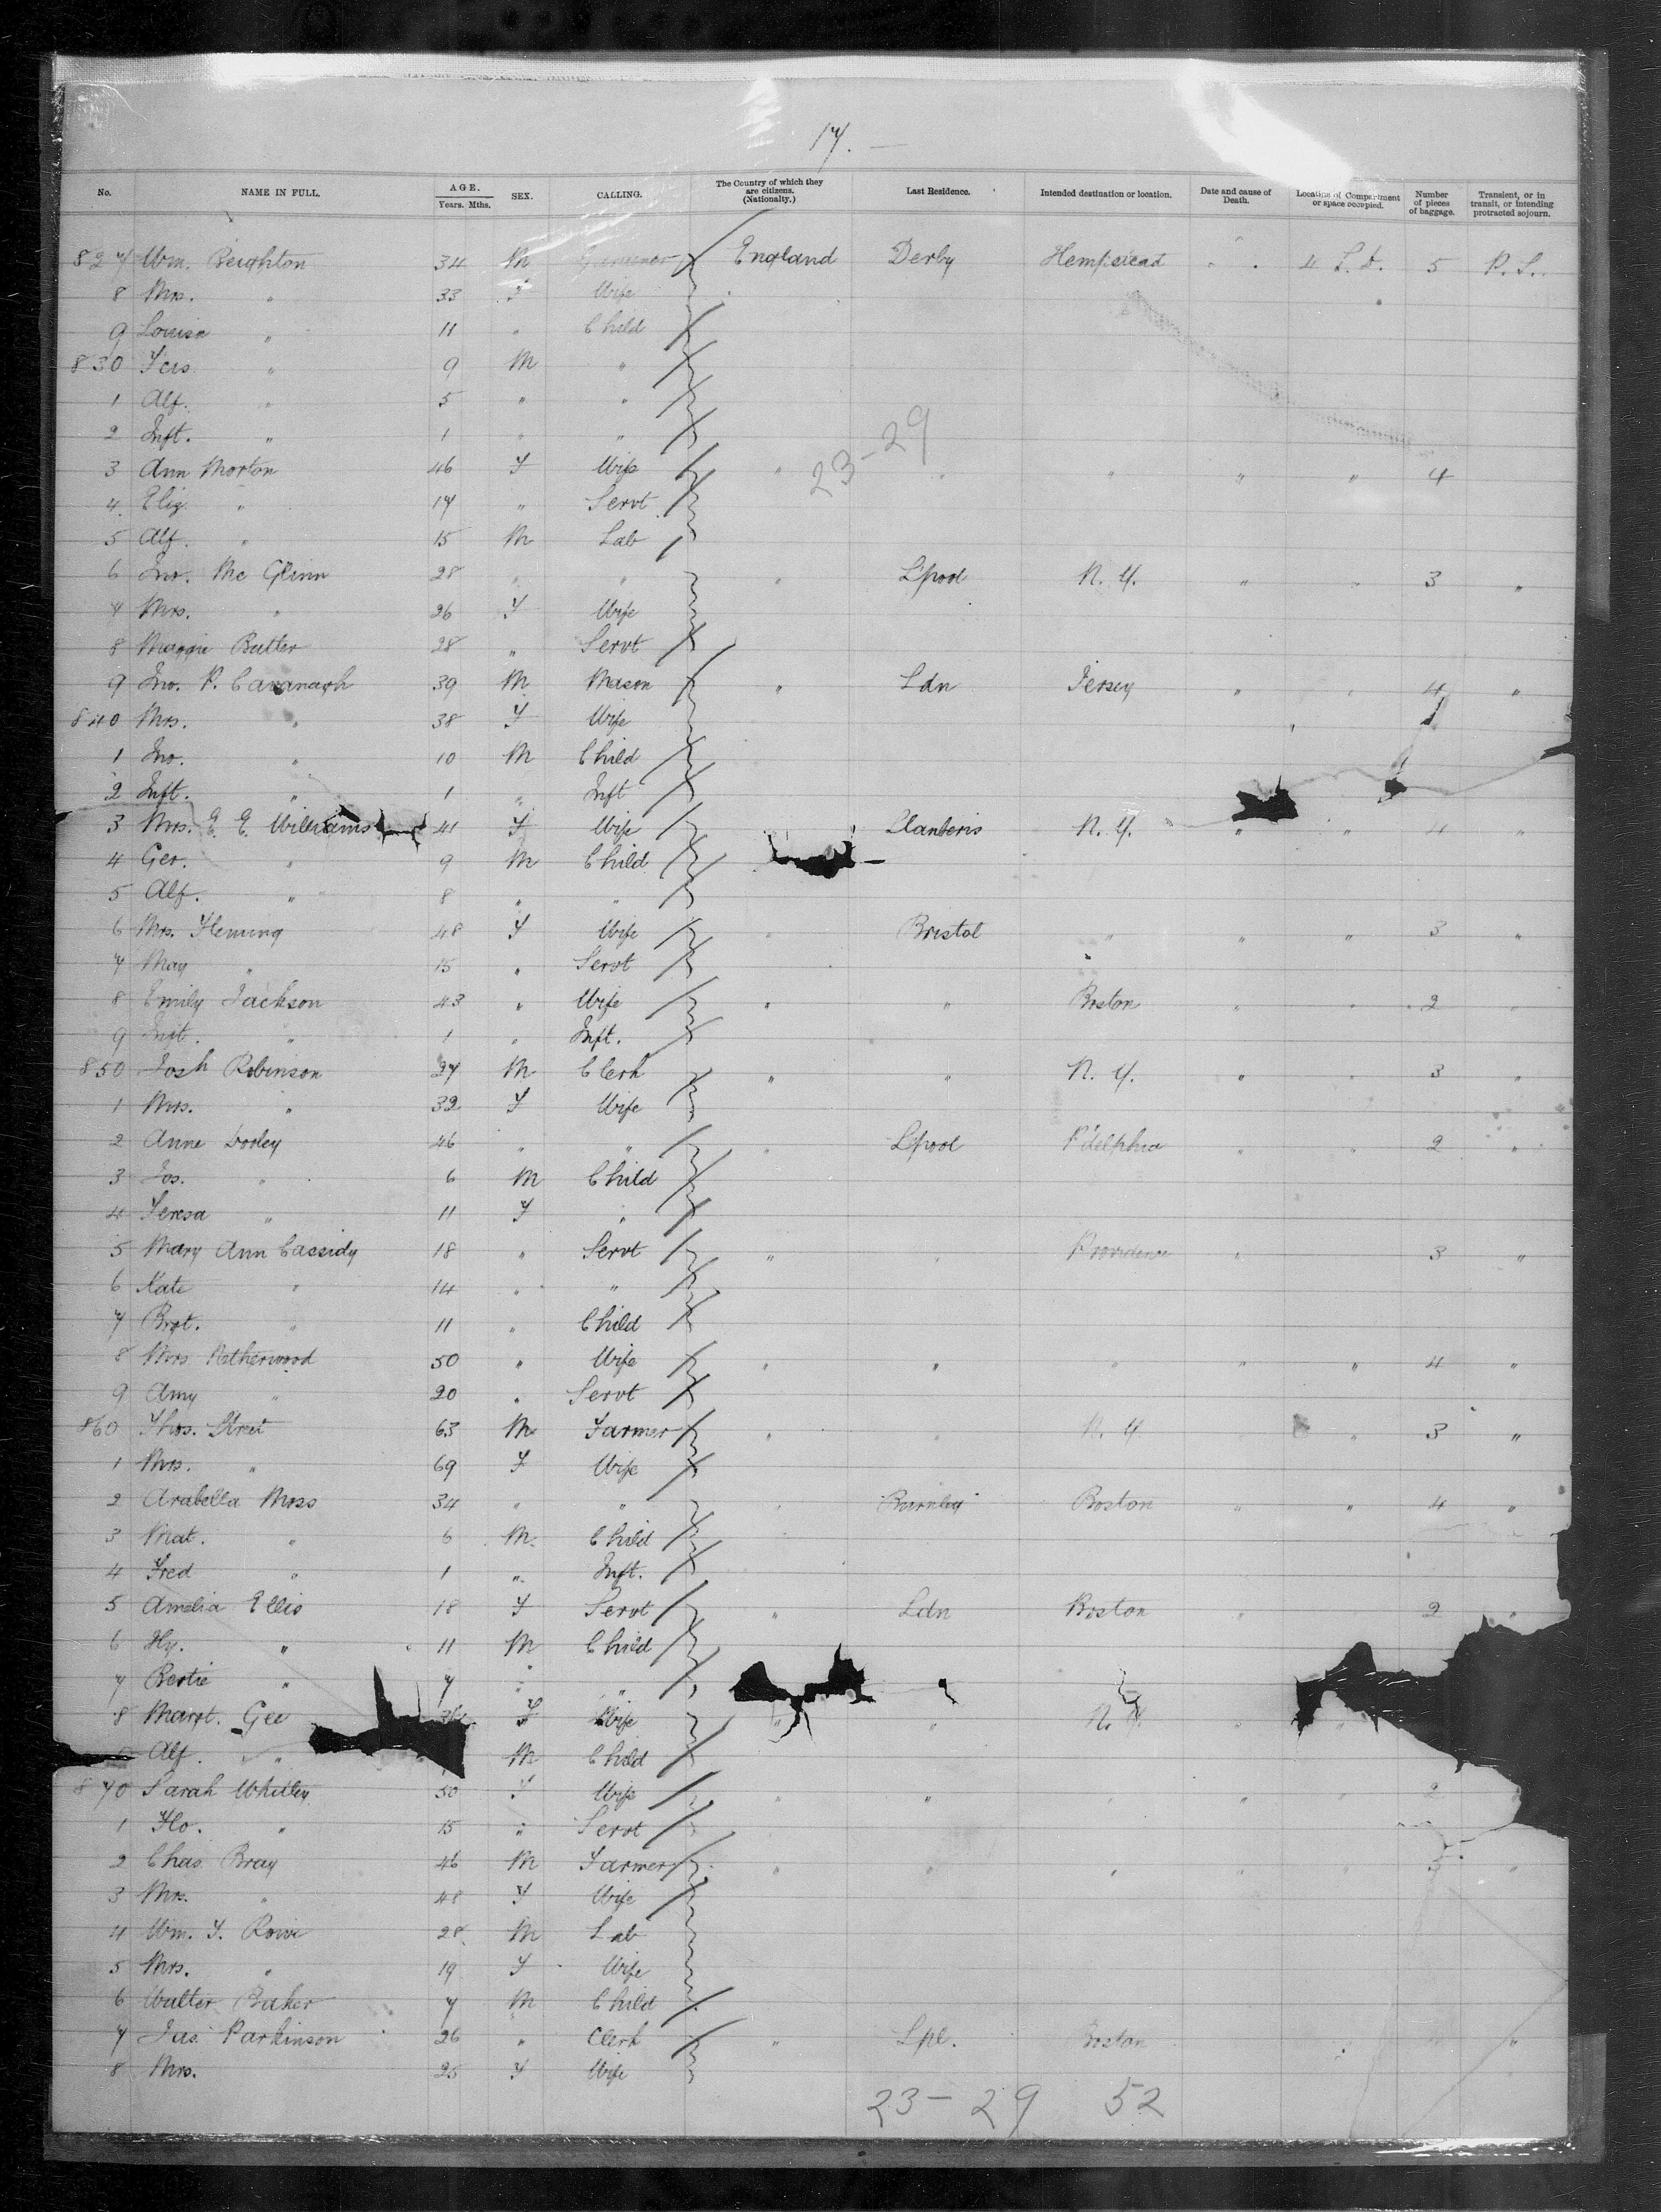 17. —
No. NAME IN FULL. AGE. Years. Mths. SEX. CALLING. The Country of which they are citizens. (Nationalty.) Last Residence. Intended destination or location. Date and cause of Death. Location of Compartment or space occupied. Number of pieces of baggage. Transient, or in transit, or intending protracted sojourn.
827 Wm. Beighton 34 M England Derby Hempstead 4 5
8 Mrs. " 33 F Wife
9 Louisa " 11 " Child
830 " 9 M "
1 Alf. " 5 " "
2 Inft. " 1 " "
23-29
3 Ann Morton 46 F Wife " " " " " 4
4 Eliz. " 17 " Servt
5 Alf. " 15 M Lab
6 Jno. Mc Glinn 28 " " " L'pool N. Y. " " 3 "
7 Mrs. " 26 F Wife
8 Maggie Butler 28 " Servt
9 Jno. P. Cavanagh 39 M Mason " Ldn Jersey " " 4 "
840 Mrs. " 38 F Wife
1 Jno. " 10 M Child
2 Inft. " 1 " Inft
3 Mrs. E. E. Williams 41 F Wife Llanberis N. Y. " " 4 "
4 Geo. " 9 M Child
5 Alf. " 8 " "
6 Mrs. Fleming 48 F Wife " Bristol " " " 3 "
7 May " 15 " Servt
8 Emily Jackson 43 " Wife " " Boston " " 2 "
9 Inft. " 1 " Inft.
850 Josh Robinson 27 M Clerk " " N. Y. " " 3 "
1 Mrs. " 32 F Wife
2 Anne 46 " " " L'pool P'delphia " " 2 "
3 Jos. " 6 M Child
4 Teresa " 11 F "
5 Mary Ann Cassidy 18 " Servt " " Providence " 3 "
6 Kate " 14 " "
7 Brgt. " 11 " Child
8 Mrs 50 " Wife " " " " " 4 "
9 Amy " 20 " Servt
860 Thos. Street 63 M Farmer " " N. Y " 3 "
1 Mrs. " 69 F Wife
2 Arabella Moss 34 " " " Burnley Boston " " 4 "
3 Mat. " 6 M. Child
4 Fred " 1 " Inft.
5 Amelia Ellis 18 F Servt " Ldn Boston " 2 "
6 Hy. " 11 M Child
7 Bertie " 7 " "
8 Margt. Gee F Wife " " N. Y. "
Alf. " M Child
870 Sarah Whitley 50 F Wife " " " " " 2
1 Flo. " 15 " Servt
2 Chas. Bray 46 M Farmer " " " " " "
3 Mrs. " 48 F Wife
4 Wm. J. Rowe 28 M Lab
5 Mrs. " 19 F Wife
6 Walter Baker 7 M Child
7 Jas. Parkinson 26 " Clerk " Lpl. Boston "
8 Mrs. 25 F Wife
23-29 52